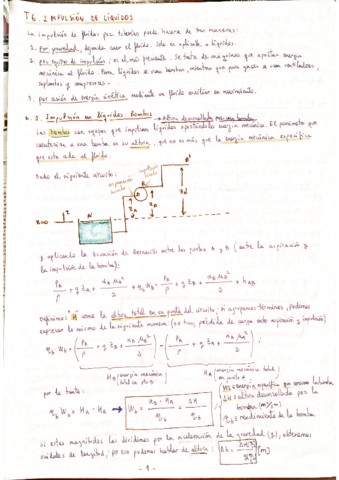 T6. IMPULSIÓN DE LÍQUIDOS
La impulsión de fluidos por tuberías puede hacerse de tres maneras:
1. Por gravedad, dejando caer el fluido. Solo es aplicable a líquidos.
2. por equipos de impulsión: es el más frecuente. Se trata de máquinas que aportan energía
mecánica al fluido. Para líquidos se usan bombas, mientras que para gases se usan ventiladores,
soplantes y compresores.
3. por acción de energía cinética mediante un fluido auxiliar en movimiento.
6.1. Impulsión en líquidos. Bombas → Altura desarrollada por una bomba.
Las bombas son equipos que impulsan líquidos aportándoles energía mecánica. El parámetro que
caracteriza a una bomba es su altura, que no es más que la energía mecánica específica
que esta cede al fluido.
Dado el siguiente circuito:
B'
aspiración bomba
impulsión bomba
B
A
A'
z=0
z
z_A
z_B
y aplicando la Ecuación de Bernoulli entre los puntos A y B (entre la aspiración y
la impulsión de la bomba):
P_A/ρ + g z_A + α_A μ_A²/2 + η_b W_b = P_B/ρ + g z_B + α_B μ_B²/2 + h_AB
Definimos "H" como la altura total en un punto del circuito, si agrupamos términos, podemos
expresar lo mismo de la siguiente manera (no hay pérdida de carga entre aspiración y impulsión)
η_b W_b = (P_B/ρ + g z_B + α_B μ_B²/2) - (P_A/ρ + g z_A + α_A μ_A²/2)
H_B (energía mecánica total en pto B)
H_A (energía mecánica total en punto A)
por lo tanto:
η_b W_b = H_B - H_A → W_b = (H_B - H_A)/η_b = ΔH/η_b
W = energía específica que consume la bomba
ΔH = altura desarrollada por la
bomba. (m²/s²)
η_b = rendimiento de la bomba
si estas magnitudes las dividimos por la aceleración de la gravedad (g), obtenemos
unidades de longitud; por eso podemos hablar de altura: Δh = ΔH/g [m]
- 1 -